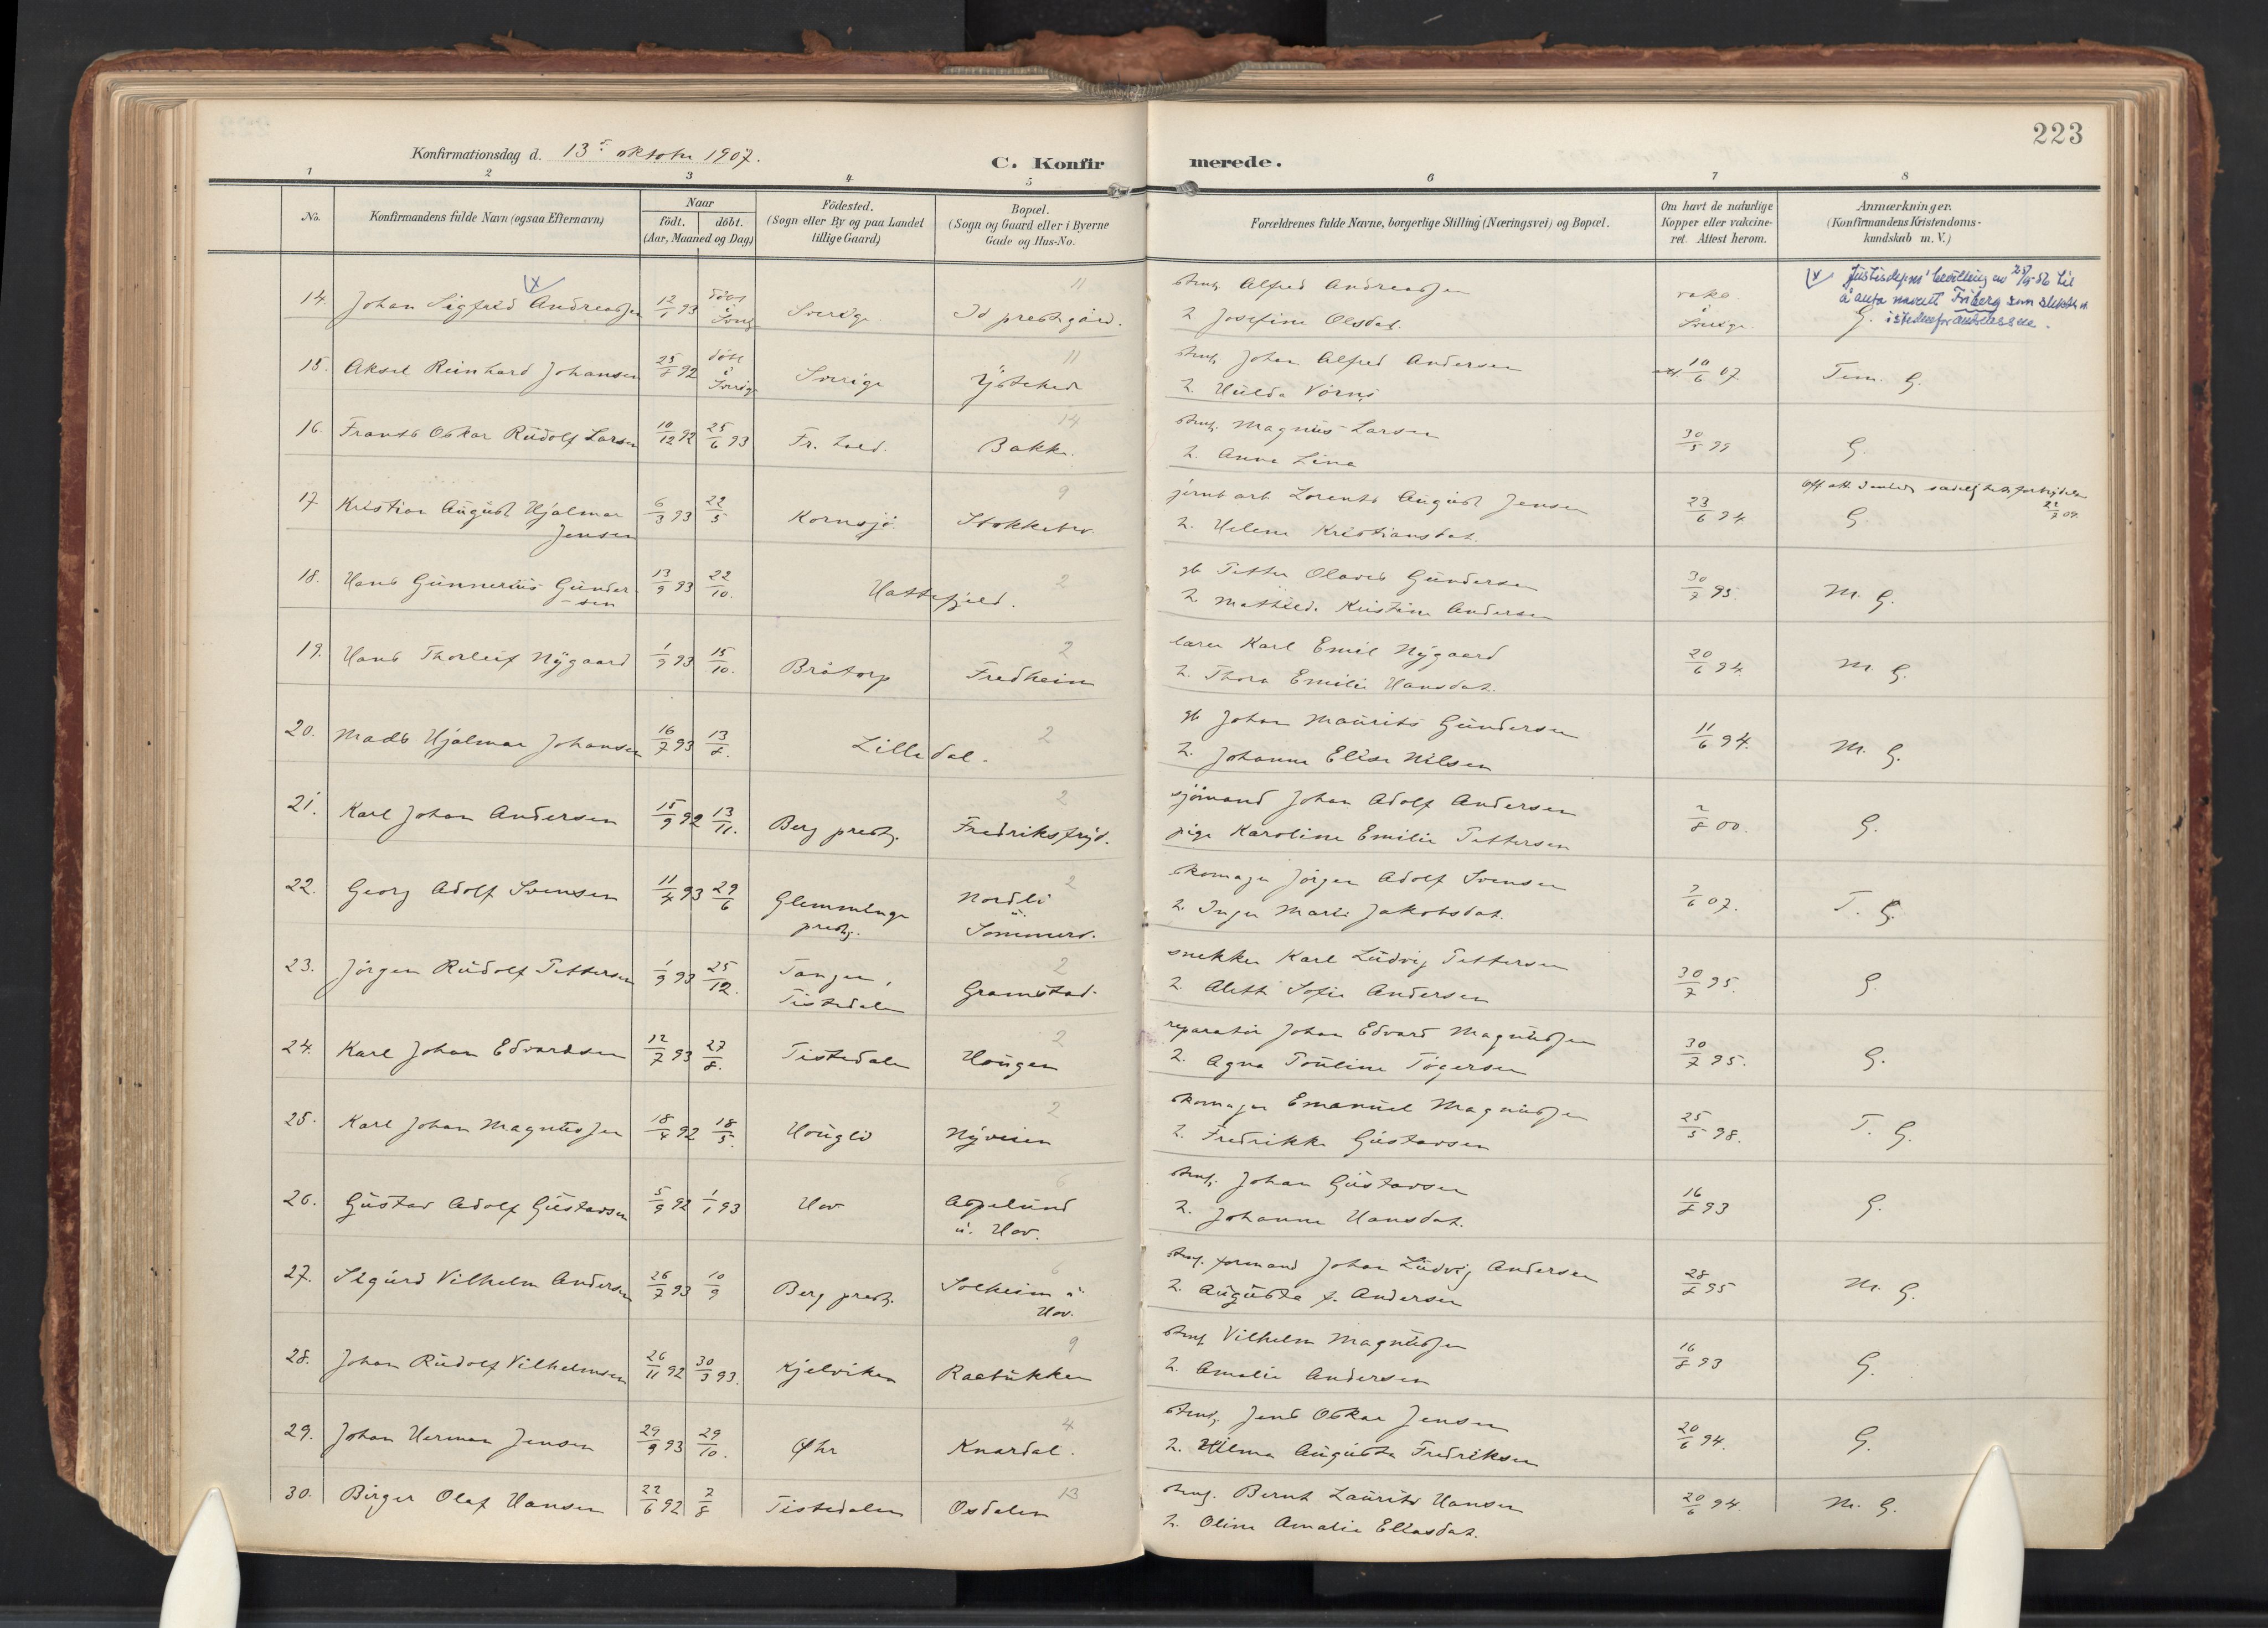 223
Konfirmationsdag d. 13de oktober 1907.
C. Konfirmerede.
1 2 3 4 5 6 7 8
No. Konfirmandens fulde Navn (ogsaa Efternavn) Naar födt. döbt. (Aar, Maaned og Dag) Födested. (Sogn eller By og paa Landet tillige Gaard) Bopæl. (Sogn og Gaard eller i Byerne Gade og Hus-No. Forældrenes fulde Navne, borgerlige Stilling (Næringsvei) og Bopæl. Om havt de naturlige Kopper eller vakcineret. Attest herom. Anmærkninger. (Konfirmandens Kristendomskundskab m. V.)
14. Johan Sigfred Andreassen 12/1 93 döbt i Sverige Sverige Id prestgård. 11 Alfred Andreassen
2. Josefine Olsdat. vakc. i Sverige G.
à anta navnet Friberg som slektsn. istedenfor Andreassen.
15. Aksel Reinhard Johansen 25/8 92 döbt i Sverige Sverige 11 Johan Alfred Andersen 10/6 07. Tem. G.
2. Hulda
16. Frants Oskar Rudolf Larsen 10/12 92 25/6 93 Fr. hald. Bakke. 14 Magnus Larsen 30/5 99 G.
2. Anna Lina
17. Kristian August Hjalmar Jensen 6/3 93 22/5 Kornsjö 9 jernb arb Lorents August Jensen 23/6 94. G.
2. Helene Kristiansdat. 22/7 09.
18. Hans Gunnerius Gundersen 13/9 93 22/10. Hattefjeld. 2 gb Petter Olaves Gundersen 30/7 95. M. G.
2. Mathilde Kristine Andersen
19. Hans Thorleif Nygaard 1/9 93 15/10. Bråtorp Fredheim 2 lærer Karl Emil Nygaard 20/6 94. M. G.
2. Thora Emilie Hansdat.
20. Mads Hjalmar Johansen 16/7 93 13/8. Lilledal. 2 gb Johan Maurits Gundersen 11/6 94. M. G.
2. Johanne Elise Nilsen
21. Karl Johan Andersen 15/9 92 13/11. Berg prestg. Fredriksfryd. 2 sjömand Johan Adolf Andersen 2/8 00. G.
pige Karoline Emilie Pettersen
22. Georg Adolf Svensen 11/4 93 29/6 Glemminge prestg. Nordli u. Sommero. 2 skomager Jörgen Adolf Svensen 7/6 07. T. G.
2. Inger Marie Jakobsdat.
23. Jörgen Rudolf Pettersen 1/9 93 25/12. Tangen, Tistedalen Gramstad. 2 snekker Karl Ludvig Pettersen 30/7 95. G.
2. Alette Sofie Andersen
24. Karl Johan Edvardsen 12/7 93 27/8. Tistedalen Hougen 2 reparatör Johan Edvard Magnussen 30/7 95. G.
2. Agna Pouline Tögersen
25. Karl Johan Magnussen 18/4 92 18/5. Houglö Nyveien 2 skomager Emanuel Magnussen 25/5 98. T. G.
2. Fredrikke Gustavsen
26. Gustav Adolf Gustavsen 5/9 92 1/1 93 Hov Aspelund u. Hov. 6 Johan Gustavsen 16/8 93 G.
2. Johanne Hansdat.
27. Sigurd Vilhelm Andersen 26/7 93 10/9 Berg prestg. Solheim u. Hov. 6 formand Johan Ludvig Andersen 28/8 95 M. G.
2. Augusta f. Andersen
28. Johan Rudolf Vilhelmsen 26/11 92 30/3 93. Kjelviken Raebukken 9 Vilhelm Magnussen 16/8 93 G.
2. Amalie Andersen
29. Johan Herman Jensen 29/9 93 29/10. Øhr Knardal. 4 Jens Oskar Jensen 20/6 94. G.
2. Hilma Augusta Fredriksen
30. Birger Olaf Hansen 22/6 92 7/8 Tistedalen Osdalen 13 Bernt Laurits Hansen 20/6 94. M. G.
2. Oline Amalie Eliasdat.